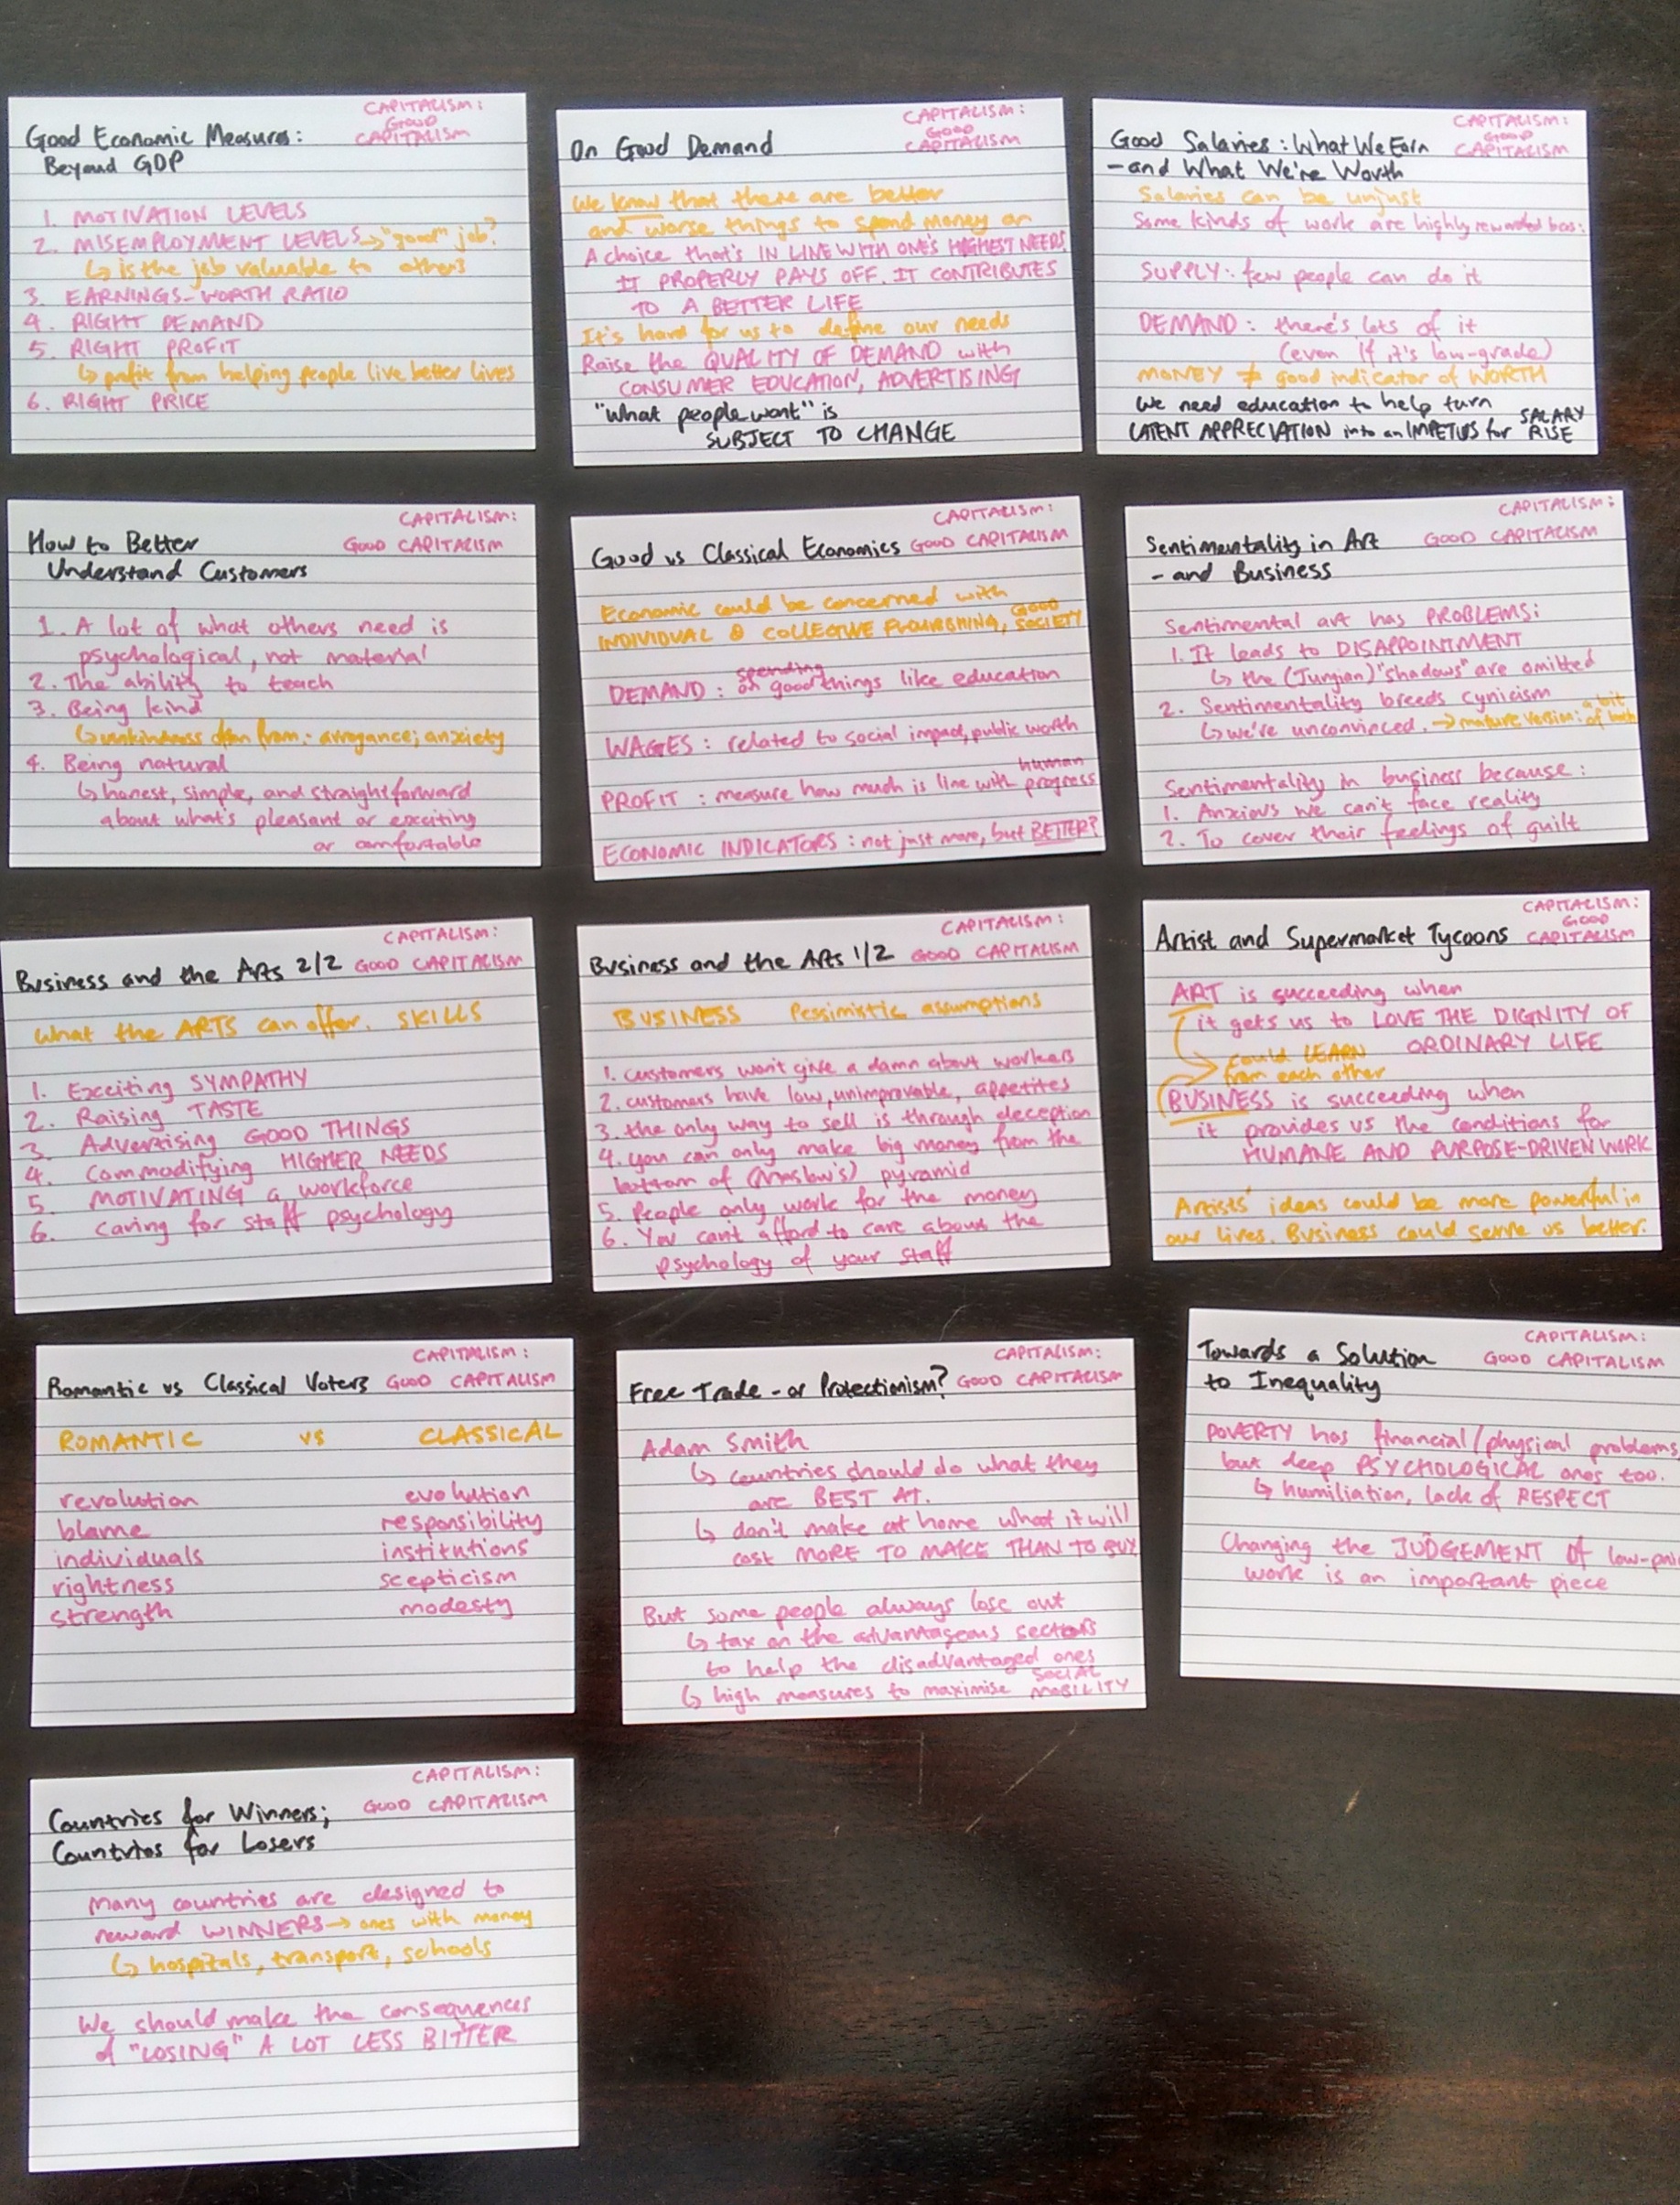 CAPITALISM:
GOOD
CAPITALISM
Good Economic Measures:
Beyond GDP
1. MOTIVATION LEVELS
2. MISEMPLOYMENT LEVELS → "good" job?
↳ is the job valuable to others
3. EARNINGS-WORTH RATIO
4. RIGHT DEMAND
5. RIGHT PROFIT
↳ profit from helping people live better lives
6. RIGHT PRICE
CAPITALISM:
GOOD
CAPITALISM
On Good Demand
We know that there are better
and worse things to spend money on
A choice that's IN LINE WITH ONE'S HIGHEST NEEDS.
IT PROPERLY PAYS OFF. IT CONTRIBUTES
TO A BETTER LIFE
It's hard for us to define our needs
Raise the QUALITY OF DEMAND with
CONSUMER EDUCATION, ADVERTISING
"What people want" is
SUBJECT TO CHANGE
CAPITALISM:
GOOD
CAPITALISM
Good Salaries: What We Earn
- and What We're Worth
Salaries can be unjust
Some kinds of work are highly rewarded bcos:
SUPPLY: few people can do it
DEMAND: there's lots of it
(even if it's low-grade)
MONEY ≠ good indicator of WORTH
We need education to help turn
LATENT APPRECIATION into an IMPETUS for SALARY RISE
CAPITALISM:
GOOD CAPITALISM
How to Better
Understand Customers
1. A lot of what others need is
psychological, not material
2. The ability to teach
3. Being kind
↳ unkindness often from: arrogance; anxiety
4. Being natural
↳ honest, simple, and straightforward
about what's pleasant or exciting
or comfortable
CAPITALISM:
Good vs Classical Economics GOOD CAPITALISM
Economic could be concerned with
INDIVIDUAL & COLLECTIVE FLOURISHING, GOOD SOCIETY
DEMAND: spending on good things like education
WAGES: related to social impact, public worth
PROFIT: measure how much is line with human progress
ECONOMIC INDICATORS: not just more, but BETTER?
CAPITALISM:
GOOD CAPITALISM
Sentimentality in Art
- and Business
Sentimental art has PROBLEMS:
1. It leads to DISAPPOINTMENT
↳ the (Jungian) "shadows" are omitted
2. Sentimentality breeds cynicism
↳ we're unconvinced. → mature version: a bit of both
Sentimentality in business because:
1. Anxious we can't face reality
2. To cover their feelings of guilt
CAPITALISM:
Business and the Arts 2/2 GOOD CAPITALISM
What the ARTS can offer. SKILLS
1. Exciting SYMPATHY
2. Raising TASTE
3. Advertising GOOD THINGS
4. Commodifying HIGHER NEEDS
5. MOTIVATING a workforce
6. Caring for staff psychology
CAPITALISM:
Business and the Arts 1/2 GOOD CAPITALISM
BUSINESS Pessimistic assumptions
1. customers won't give a damn about workers
2. customers have low, unimprovable, appetites
3. the only way to sell is through deception
4. you can only make big money from the
bottom of (Maslow's) pyramid
5. People only work for the money
6. You can't afford to care about the
psychology of your staff
CAPITALISM:
GOOD
CAPITALISM
Artist and Supermarket Tycoons
ART is succeeding when
it gets us to LOVE THE DIGNITY OF
ORDINARY LIFE
could LEARN
from each other
BUSINESS is succeeding when
it provides us the conditions for
HUMANE AND PURPOSE-DRIVEN WORK
Artists' ideas could be more powerful in
our lives. Business could serve us better.
CAPITALISM:
Romantic vs Classical Voters GOOD CAPITALISM
ROMANTIC vs CLASSICAL
revolution evolution
blame responsibility
individuals institutions
rightness scepticism
strength modesty
CAPITALISM:
Free Trade - or Protectionism? GOOD CAPITALISM
Adam Smith
↳ countries should do what they
are BEST AT.
↳ don't make at home what it will
cost MORE TO MAKE THAN TO BUY
But some people always lose out
↳ tax on the advantageous sectors
to help the disadvantaged ones
↳ high measures to maximise SOCIAL MOBILITY
CAPITALISM:
GOOD CAPITALISM
Towards a Solution
to Inequality
POVERTY has financial/physical problems,
but deep PSYCHOLOGICAL ones too.
↳ humiliation, lack of RESPECT
Changing the JUDGEMENT of low-pai
work is an important piece
CAPITALISM:
GOOD CAPITALISM
Countries for Winners;
Countries for Losers
Many countries are designed to
reward WINNERS → ones with money
↳ hospitals, transport, schools
We should make the consequences
of "LOSING" A LOT LESS BITTER